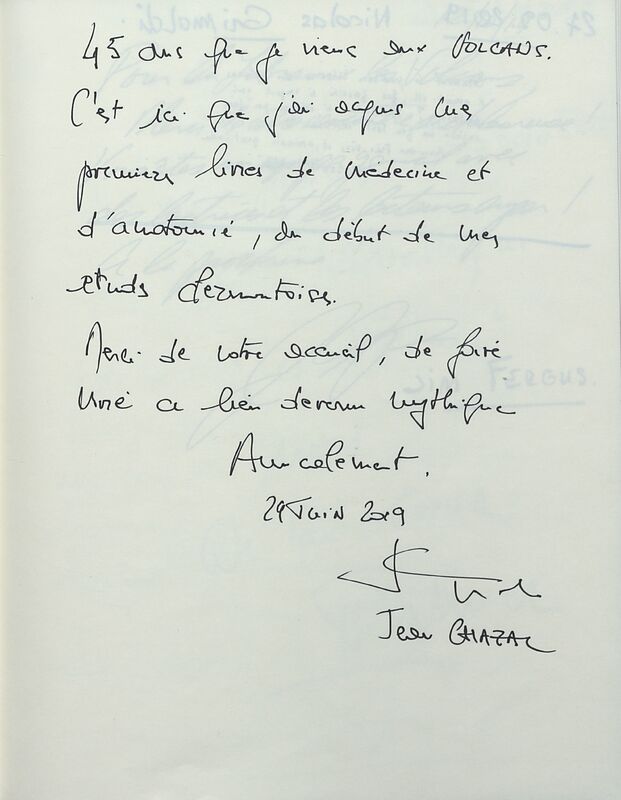 45 ans que je viens aux VOLCANS.
C'est ici que j'ai acquis mes
premiers livres de médecine et
d'anatomie, du début de mes
études clermontoises.
Merci de votre accueil, de faire
vivre ce lien devenu mythique
Amicalement.
29 JUIN 2019
Jean CHAZAL
27.09.2019 Nicolas Grimaldi
Jim FERGUS.